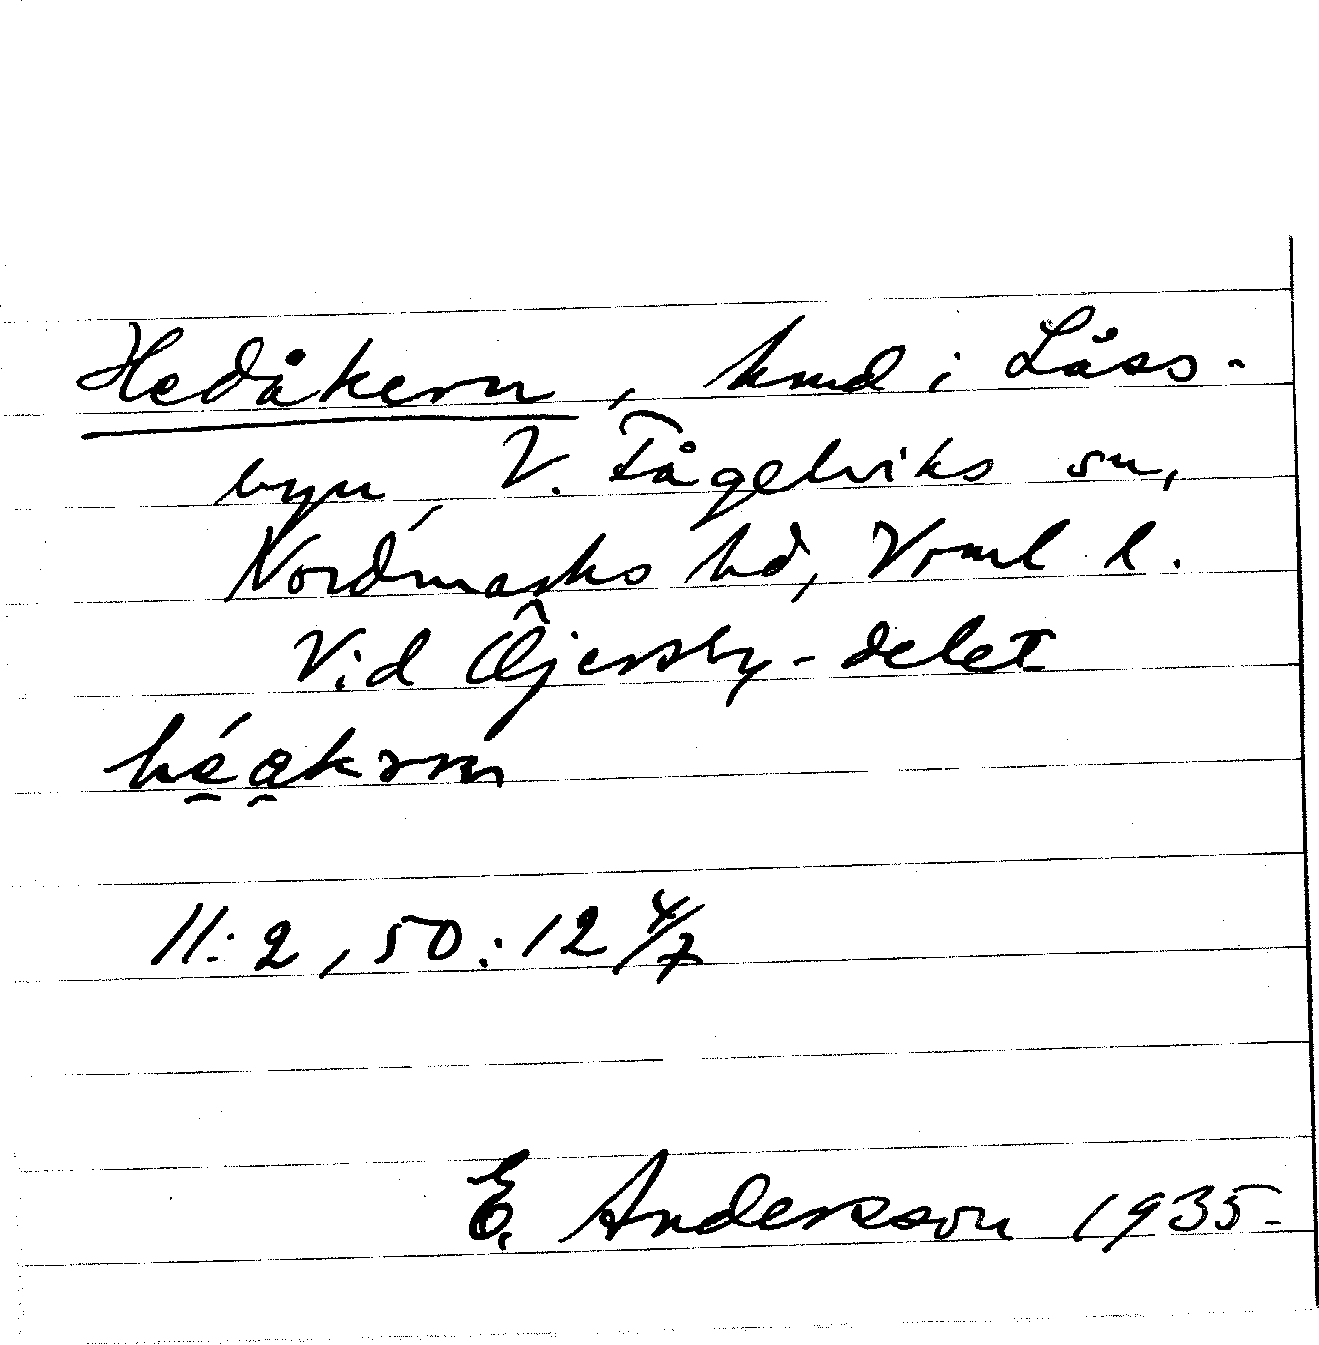 Hedåkern, hmd i Låss-
byn, V. Fågelviks sn,
Nordmarks hd, Vrml l.
Vid Öjersby-delet
11:2, 50:12 4/7
E. Andersson 1935-